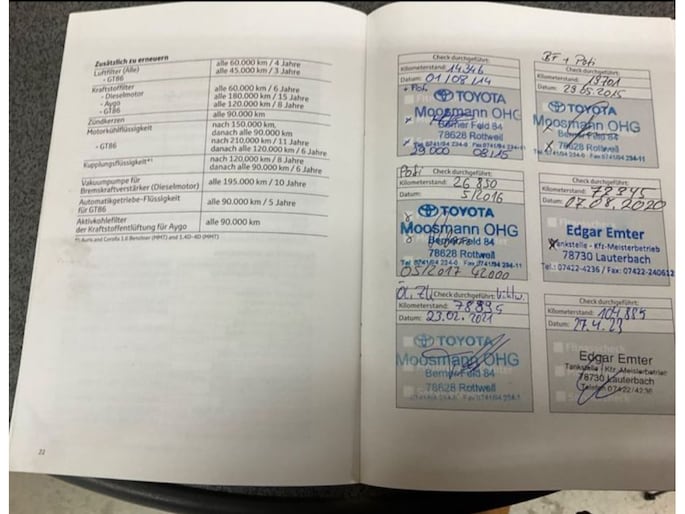 Zusätzlich zu erneuern
Luftfilter (Alle) alle 60.000 km / 4 Jahre
- GT86 alle 45.000 km / 3 Jahre
Kraftstoffilter alle 60.000 km / 6 Jahre
- Dieselmotor alle 180.000 km / 15 Jahre
- Aygo alle 120.000 km / 8 Jahre
- GT86
Zündkerzen alle 90.000 km
Motorkühlflüssigkeit nach 150.000 km,
danach alle 90.000 km
- GT86 nach 210.000 km / 11 Jahre
danach alle 120.000 km / 6 Jahre
Kupplungsflüssigkeit*¹ nach 120.000 km / 8 Jahre
danach alle 90.000 km / 6 Jahre
Vakuumpumpe für
Bremskraftverstärker (Dieselmotor) alle 195.000 km / 10 Jahre
Automatikgetriebe-Flüssigkeit
für GT86 alle 90.000 km / 5 Jahre
Aktivkohlefilter
der Kraftstoffentlüftung für Aygo alle 90.000 km
*¹) Auris und Corolla 1.6 Benziner (MMT) und 1.4D-4D (MMT)
22
Check durchgeführt:
Kilometerstand: 14346
Datum: 01/08/14
TOYOTA
Moosmann OHG
Berner Feld 84
78628 Rottweil
29 000 08/15
BF + Poti
Check durchgeführt:
Kilometerstand: 19701
Datum: 29.05.2015
TOYOTA
Moosmann OHG
Berner Feld 84
78628 Rottweil
Tel. 0741/94 234-0 Fax 0741/94 234-11
Check durchgeführt:
Kilometerstand: 26 850
Datum: 5/2016
TOYOTA
Moosmann OHG
Berner Feld 84
78628 Rottweil
Tel. 0741/94 234-0 Fax 0741/94 234-11
05/2017 42000
Check durchgeführt:
Kilometerstand:
Datum: 07.08.2020
Edgar Emter
Tankstelle - Kfz-Meisterbetrieb
78730 Lauterbach
Tel.: 07422-4236 / Fax: 07422-240612
Check durchgeführt:
Kilometerstand: 78995
Datum: 23.02.2021
TOYOTA
Moosmann OHG
Berner Feld 84
78628 Rottweil
Check durchgeführt:
Kilometerstand: 104885
Datum: 27.4.23
Edgar Emter
Tankstelle / Kfz-Meisterbetrieb
78730 Lauterbach
Telefon 07422/4236